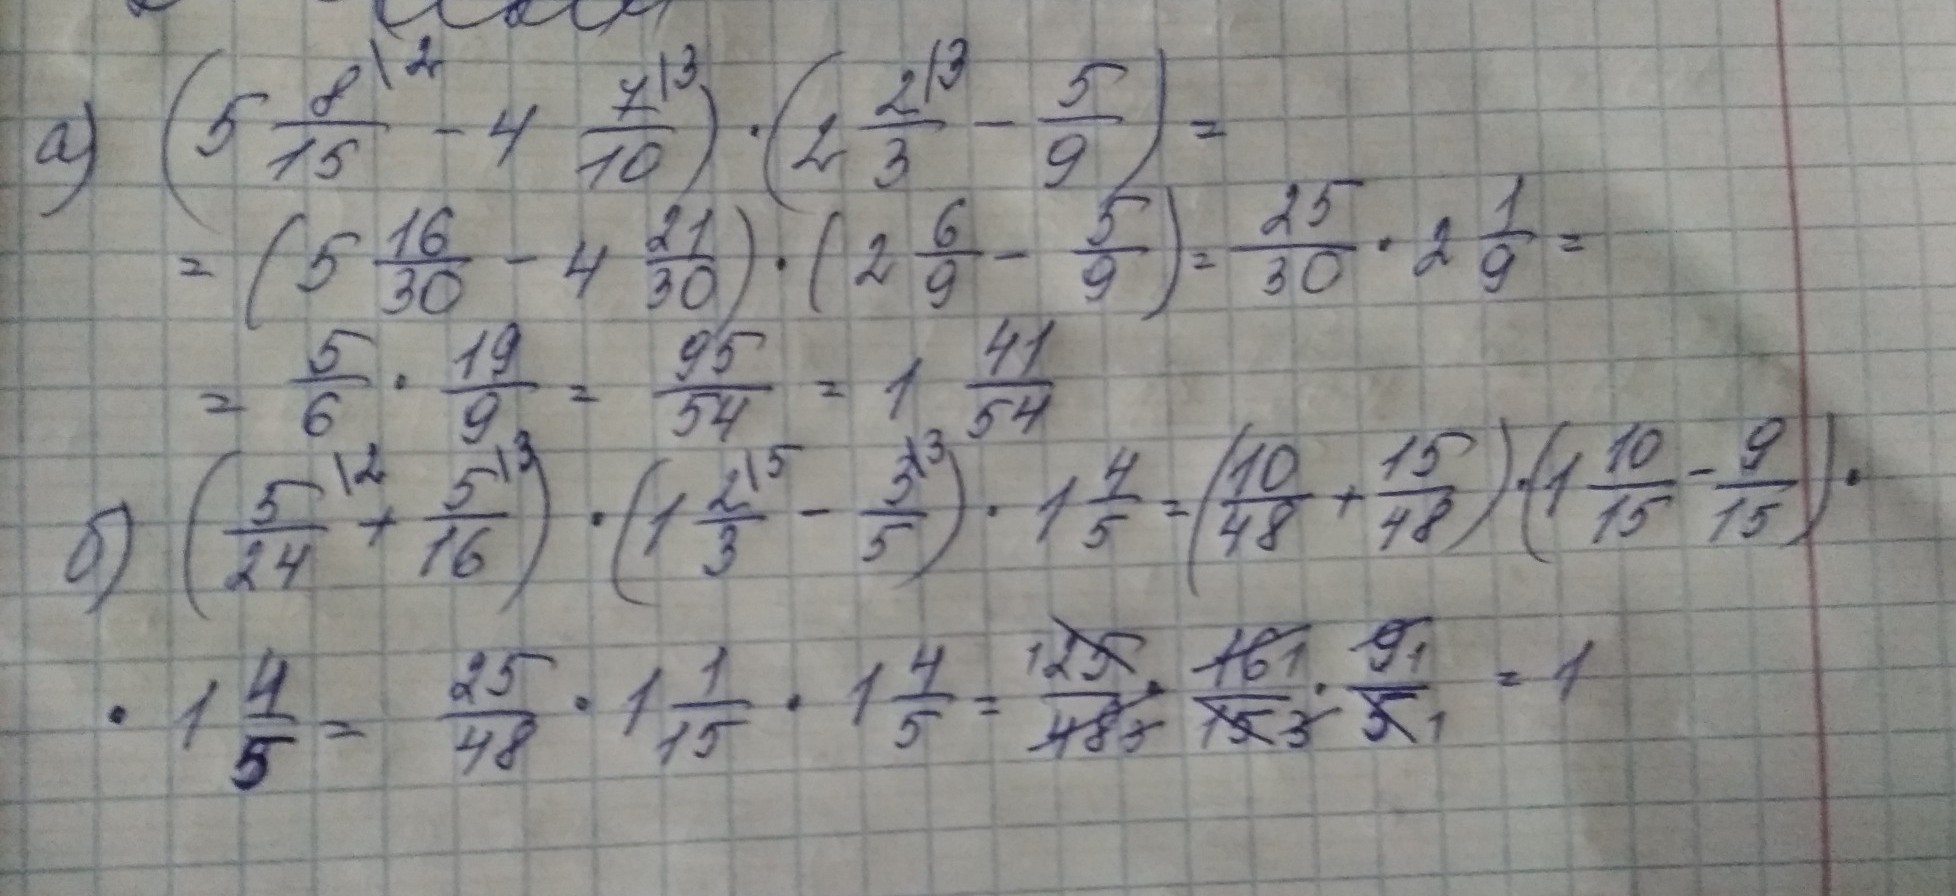 а) (5 8/15 \2 - 4 7/10 \3) · (2 2/3 \3 - 5/9) =
= (5 16/30 - 4 21/30) · (2 6/9 - 5/9) = 25/30 · 2 1/9 =
= 5/6 · 19/9 = 95/54 = 1 41/54
б) (5/24 \2 + 5/16 \3) · (1 2/3 \5 - 3/5 \3) · 1 4/5 = (10/48 + 15/48) · (1 10/15 - 9/15) ·
· 1 4/5 = 25/48 · 1 1/15 · 1 4/5 = 1 25/48 3 · 16 1/15 3 · 9 1/5 1 = 1